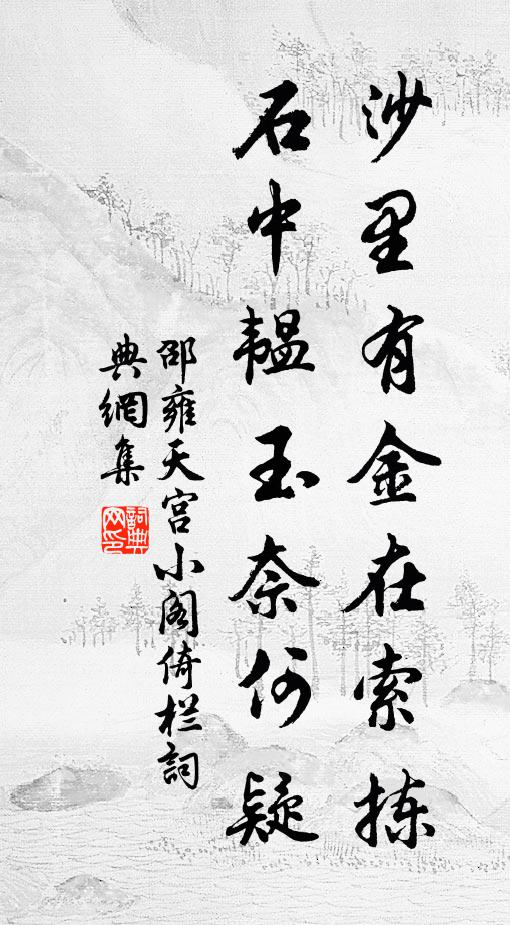 沙里有金在索拣
石中韫玉奈何疑
邵雍天宫小阁倚栏詞
典網集
詞典网印